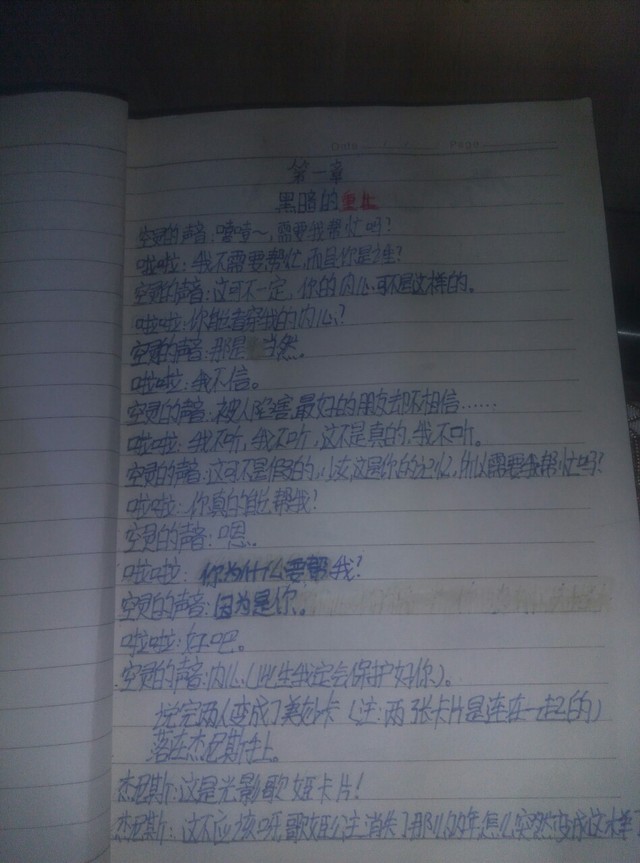 Date Page
第一章
黑暗的
空灵的声音：嘻嘻~，需要我帮忙吗？
啦啦：我不需要帮忙，而且你是？
空灵的声音：这可不一定，你的内心可不是这样的。
啦啦：你能看穿我的内心？
空灵的声音：那是当然。
啦啦：我不信。
空灵的声音：被人陷害，最好的朋友却不相信……
啦啦：我不听，我不听，这不是真的，我不听。
空灵的声音：这可不是假的，这是你的记忆，所以需要我帮忙吗？
啦啦：你真的能帮我？
空灵的声音：嗯。
啦啦：你为什么要帮我？
空灵的声音：因为是你。
啦啦：好吧。
空灵的声音：内心（此生我定会保护好你）。
说完两人变成了美妙卡（注：两张卡片是连在一起的）
落在杰尼斯手上。
杰尼斯：这是光影歌姬卡片！
杰尼斯：这不应该呀，歌姬公主消失了那么多年，怎么突然变成这样